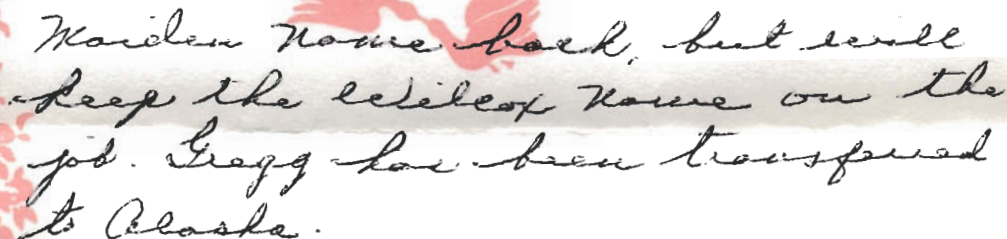 Maiden Name back, but will
keep the Wilcox Name on the
job. Gregg has been transfered
to Alaska.